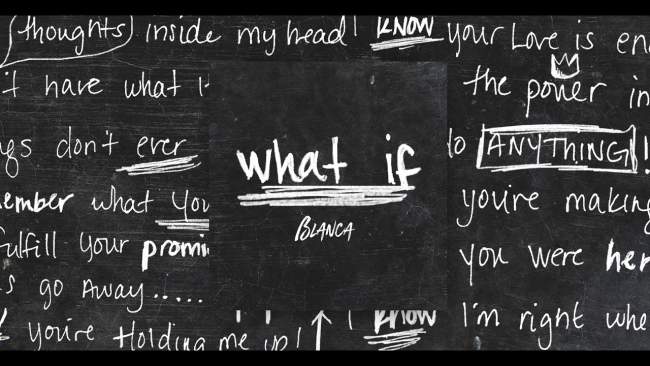 thoughts inside my head!
KNOW your Love is en
't have what i
the power in
gs don't ever
to ANYTHING!!
what if
BLANCA
ember what You
you're making
fulfill Your promi
you were her
s go Away.....
You're Holding me up!
I know
I'm right whe